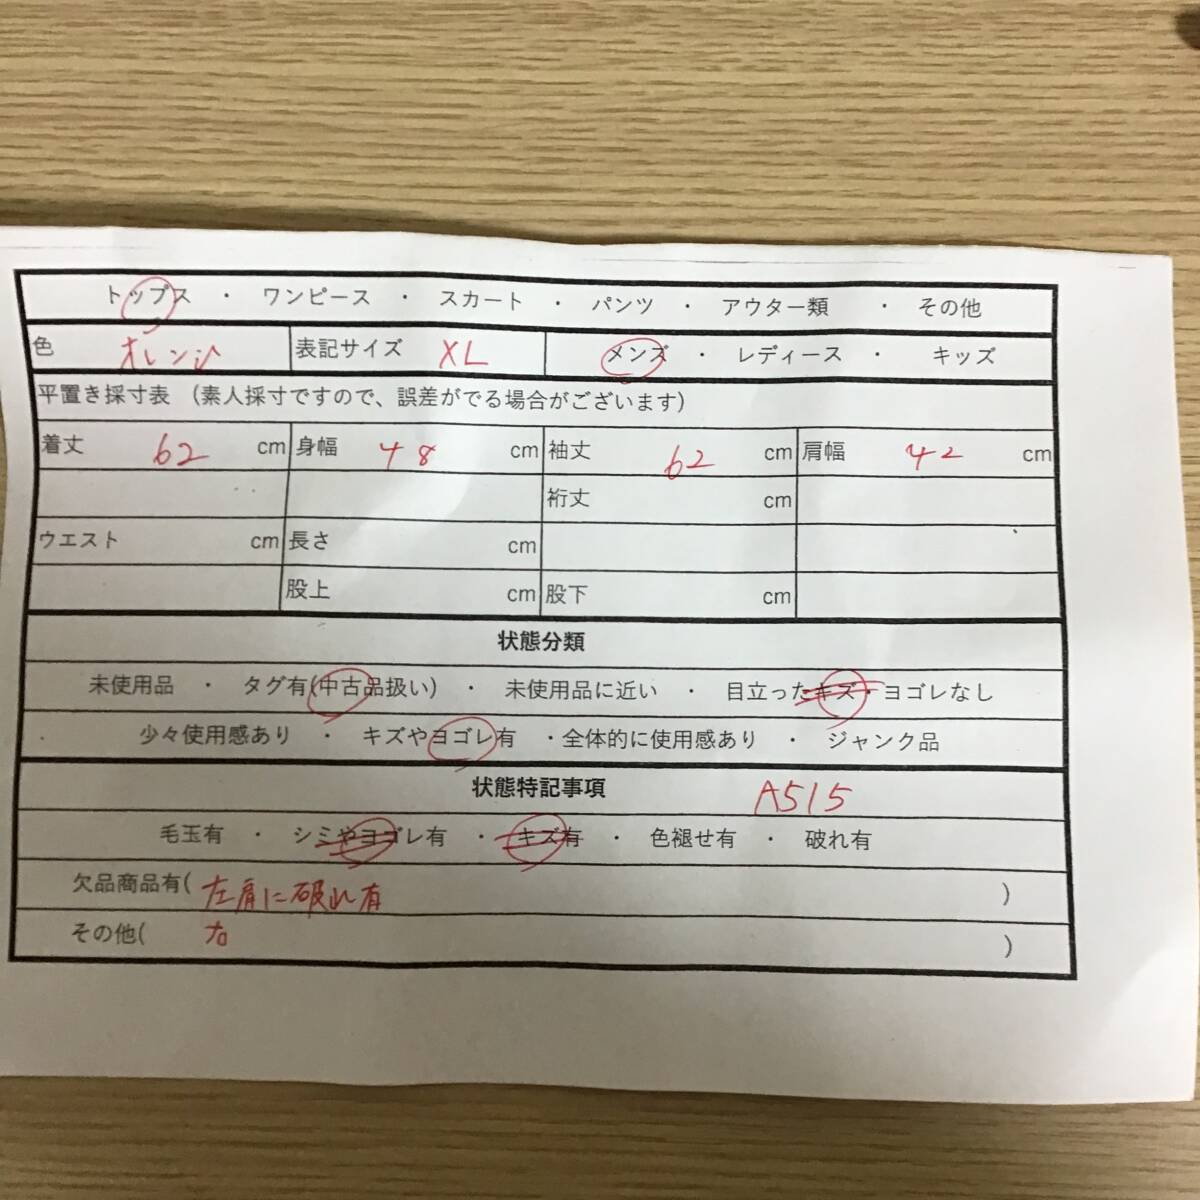 トップス ・ ワンピース ・ スカート ・ パンツ ・ アウター類 ・ その他
色 オレンジ 表記サイズ XL メンズ ・ レディース ・ キッズ
平置き採寸表 (素人採寸ですので、誤差がでる場合がございます)
着丈 62 cm 身幅 48 cm 袖丈 62 cm 肩幅 42 cm
裄丈 cm
ウエスト cm 長さ cm
股上 cm 股下 cm
状態分類
未使用品 ・ タグ有(中古品扱い) ・ 未使用品に近い ・ 目立ったキズ・ヨゴレなし
少々使用感あり ・ キズやヨゴレ有 ・全体的に使用感あり ・ ジャンク品
状態特記事項 A515
毛玉有 ・ シミやヨゴレ有 ・ キズ有 ・ 色褪せ有 ・ 破れ有
欠品商品有( 左肩に破れ有 )
その他( 右 )